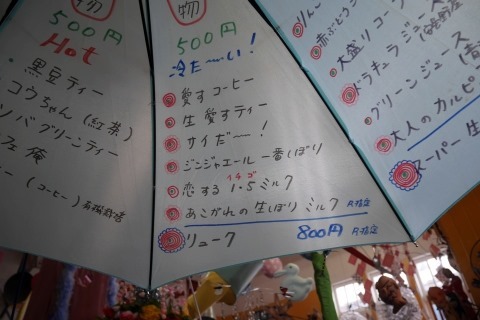 物
500円
Hot
黒豆ティー
コウちゃん(紅茶)
ソバグリーンティー
フェ庵
ー(コーヒー)有機栽培
物
500円
冷た〜い!
愛すコーヒー
生愛すティー
サイだ〜!
ジンジャエール一番しぼり
イチゴ
恋する1・5ミルク
あこがれの生しぼりミルク R指定
リューク 800円 R指定
りんご
赤ぶどう
大盛りコーラ
ドラキュラジュース
グリーンジュース
大人のカルピ
スーパー生